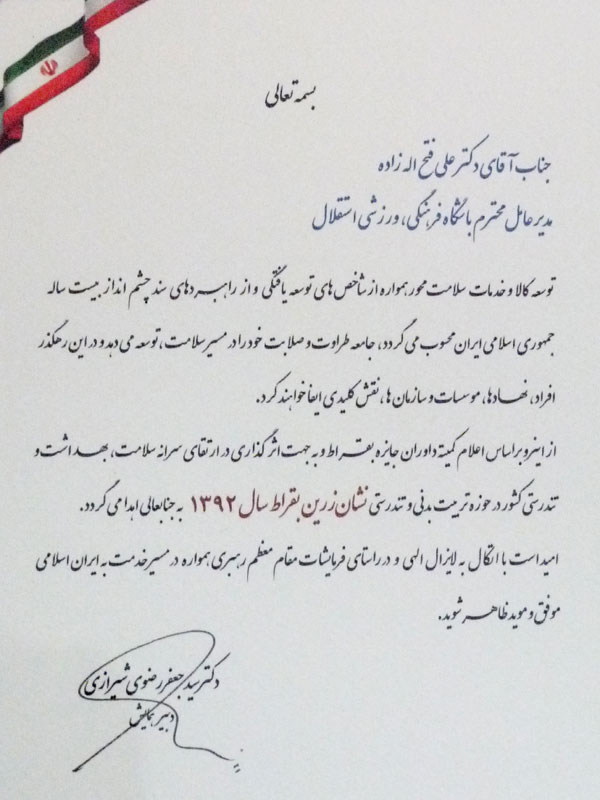 بسمه تعالی
جناب آقای دکتر علی فتح اله زاده
مدیر عامل محترم باشگاه فرهنگی، ورزشی استقلال
توسعه کالا و خدمات سلامت محور همواره از شاخص های توسعه یافتگی و از راهبردهای سند چشم انداز بیست ساله
جمهوری اسلامی ایران محسوب می گردد، جامعه طراوت و صلابت خود را در مسیر سلامت، توسعه می دهد و در این رهگذر
افراد، نهادها، موسسات و سازمان ها، نقش کلیدی ایفا خواهند کرد.
از اینرو بر اساس اعلام کمیته داوران جایزه بقراط و به جهت اثر گذاری در ارتقای سرانه سلامت، بهداشت و
تندرستی کشور در حوزه تربیت بدنی و تندرستی نشان زرین بقراط سال ۱۳۹۲ به جنابعالی اهدا می گردد.
امید است با اتکال به لایزال الهی و در راستای فرمایشات مقام معظم رهبری همواره در مسیر خدمت به ایران اسلامی
موفق و موید ظاهر شوید.
دکتر سید جعفر رضوی شیرازی
دبیر همایش